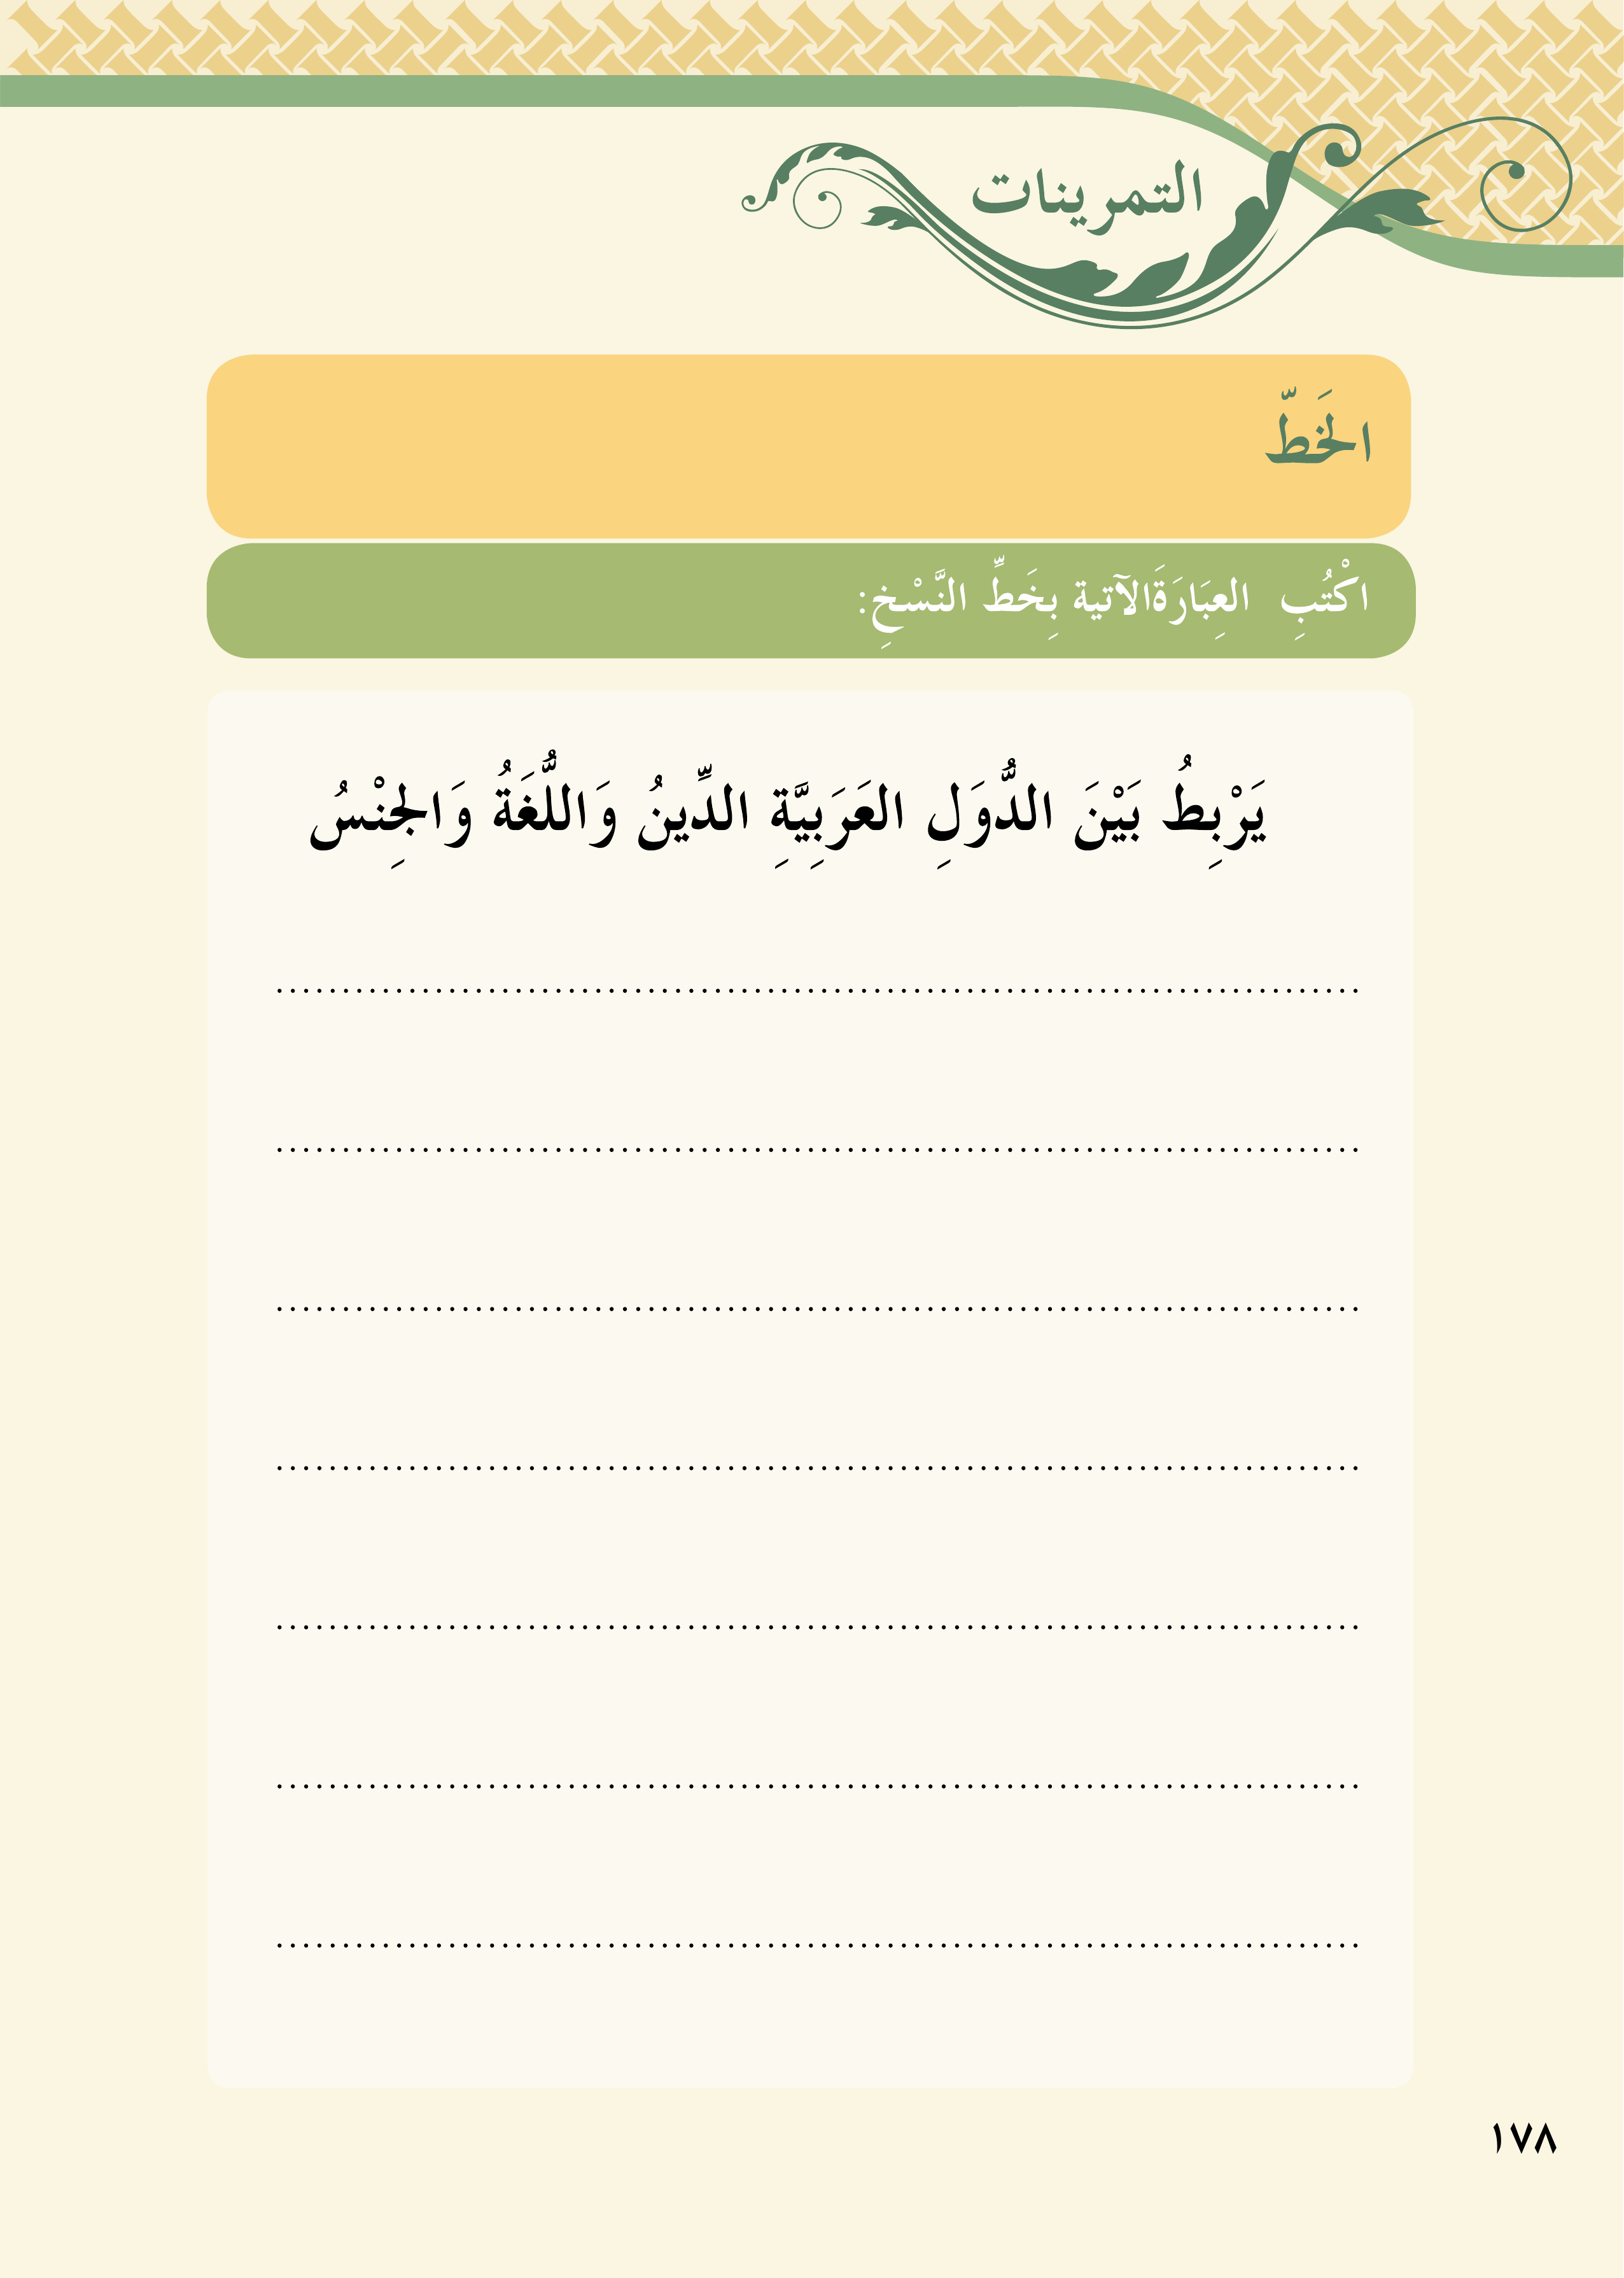 التمرينات
الخَطّ
اكْتُبِ العِبَارَةَالآتية بِخَطِّ النَّسْخِ:
يَرْبِطُ بَيْنَ الدُّوَلِ العَرَبِيَّةِ الدِّينُ وَاللُّغَةُ وَالجِنْسُ
................................................................................
................................................................................
................................................................................
................................................................................
................................................................................
................................................................................
................................................................................
١٧٨